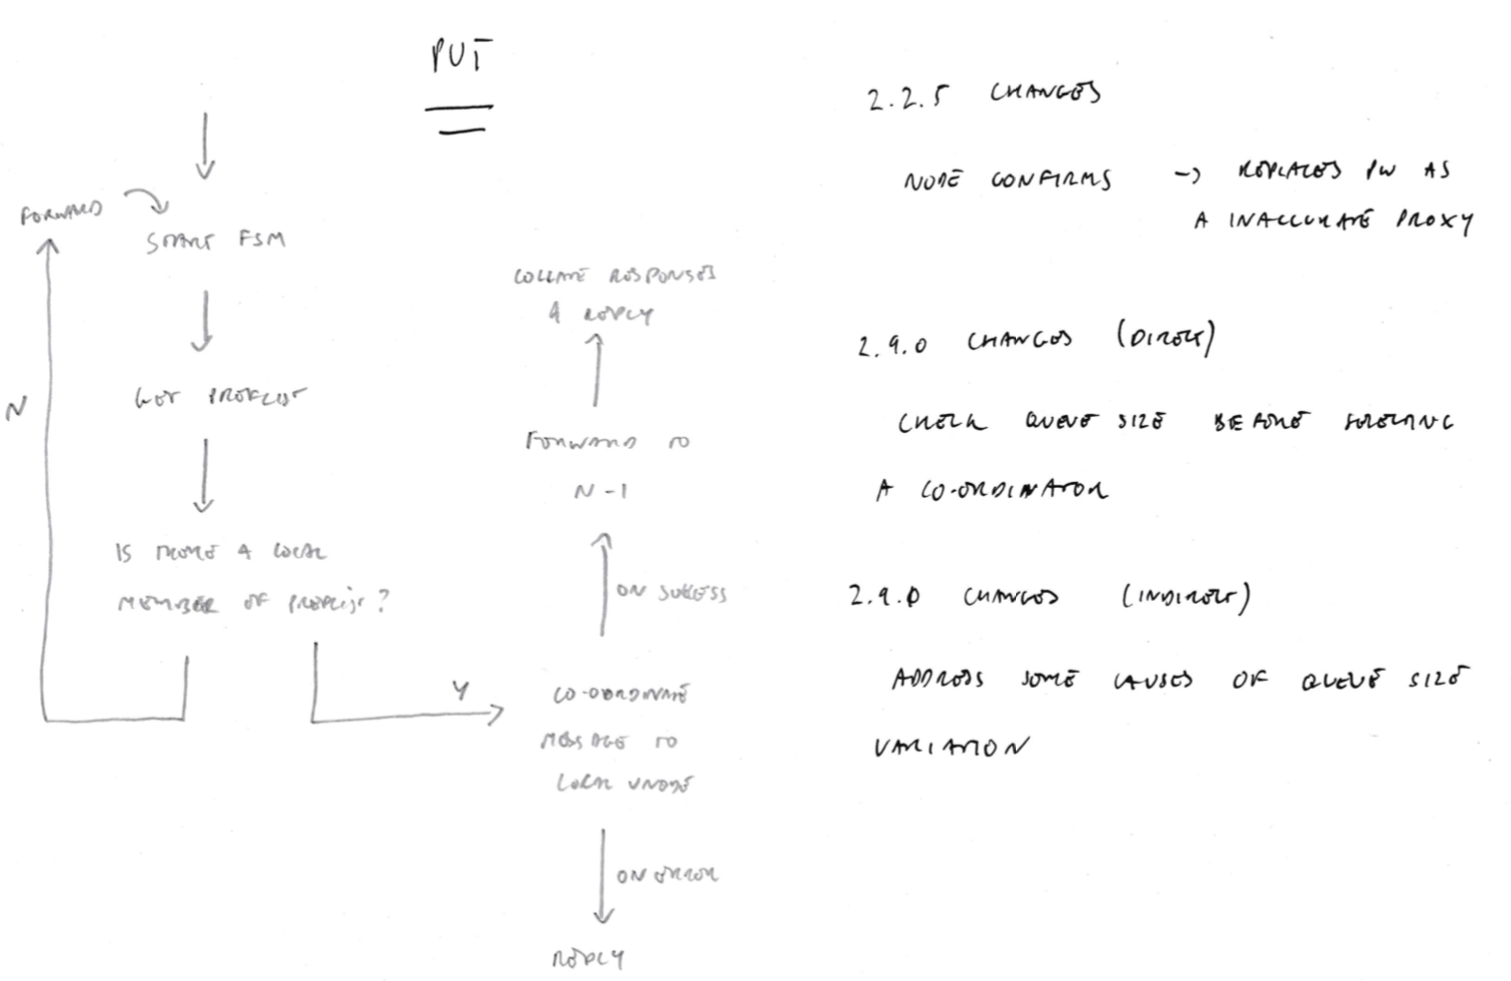 PUT
FORWARD
START FSM
GET PREFLIST
N
IS THERE A LOCAL
MEMBER OF PREFLIST?
Y
COLLATE RESPONSES
& REPLY
FORWARD TO
N-1
ON SUCCESS
CO-ORDINATE
MESSAGE TO
LOCAL VNODE
ON ERROR
REPLY
2.2.5 CHANGES
NODE CONFIRMS -> REPLACES PW AS
A INACCURATE PROXY
2.9.0 CHANGES (DIRECT)
CHECK QUEUE SIZE BEFORE SELECTING
A CO-ORDINATOR
2.9.0 CHANGES (INDIRECT)
ADDRESS SOME CAUSES OF QUEUE SIZE
VARIATION